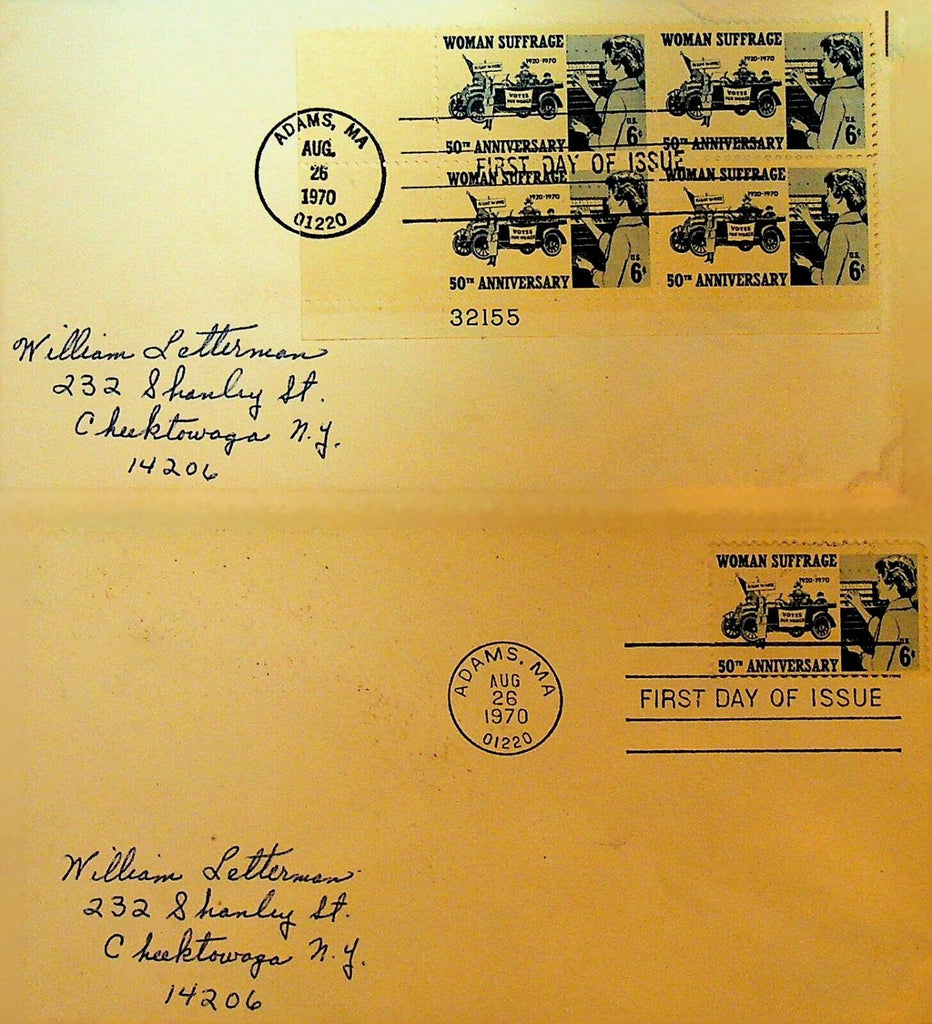 WOMAN SUFFRAGE WOMAN SUFFRAGE
1920-1970 1920-1970
VOTES VOTES
FOR WOMEN FOR WOMEN
U.S. U.S.
6¢ 6¢
50TH ANNIVERSARY 50TH ANNIVERSARY
ADAMS, MA
AUG.
26
1970
01220
FIRST DAY OF ISSUE
WOMAN SUFFRAGE WOMAN SUFFRAGE
1920-1970 1920-1970
VOTES VOTES
FOR WOMEN FOR WOMEN
U.S. U.S.
6¢ 6¢
50TH ANNIVERSARY 50TH ANNIVERSARY
32155
William Letterman
232 Shanley St.
Cheektowaga N.Y.
14206
WOMAN SUFFRAGE
1920-1970
VOTES
FOR WOMEN
U.S.
6¢
50TH ANNIVERSARY
ADAMS, MA
AUG
26
1970
01220
FIRST DAY OF ISSUE
William Letterman
232 Shanley St.
Cheektowaga N.Y.
14206